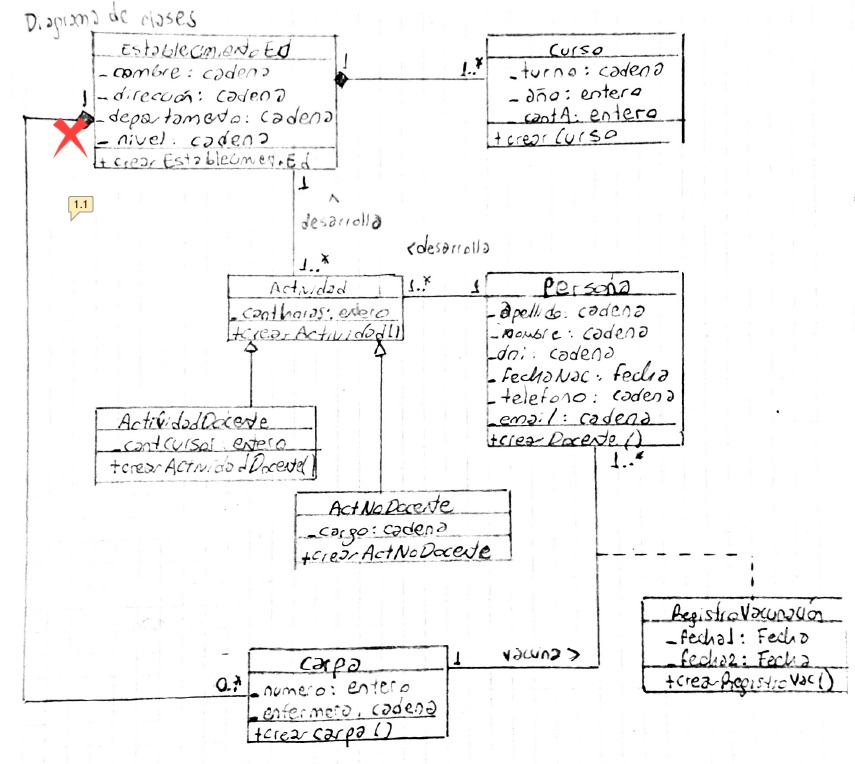 Diagrama de clases
EstablecimientoEd
- nombre: cadena
- dirección: cadena
- departamento: cadena
- nivel: cadena
+ crearEstablecimien.Ed
1
1
1
1..*
Curso
- turno: cadena
- año: entero
- cantA: entero
+ crearCurso
^
desarrolla
1..*
<desarrolla
1..*
1
1.1
Actividad
- canthoras: entero
+crearActividad()
Persona
- apellido: cadena
- nombre: cadena
- dni: cadena
- fechaNac: Fecha
- telefono: cadena
- email: cadena
+crearDocente()
1..*
ActividadDocente
- cantCursos: entero
+crearActividadDocente()
ActNoDocente
- cargo: cadena
+crearActNoDocente
RegistroVacunación
- fecha1: Fecha
- fecha2: Fecha
+crearRegistroVac()
Carpa
- numero: entero
- enfermero: cadena
+crearCarpa()
0..*
1
vacuna >